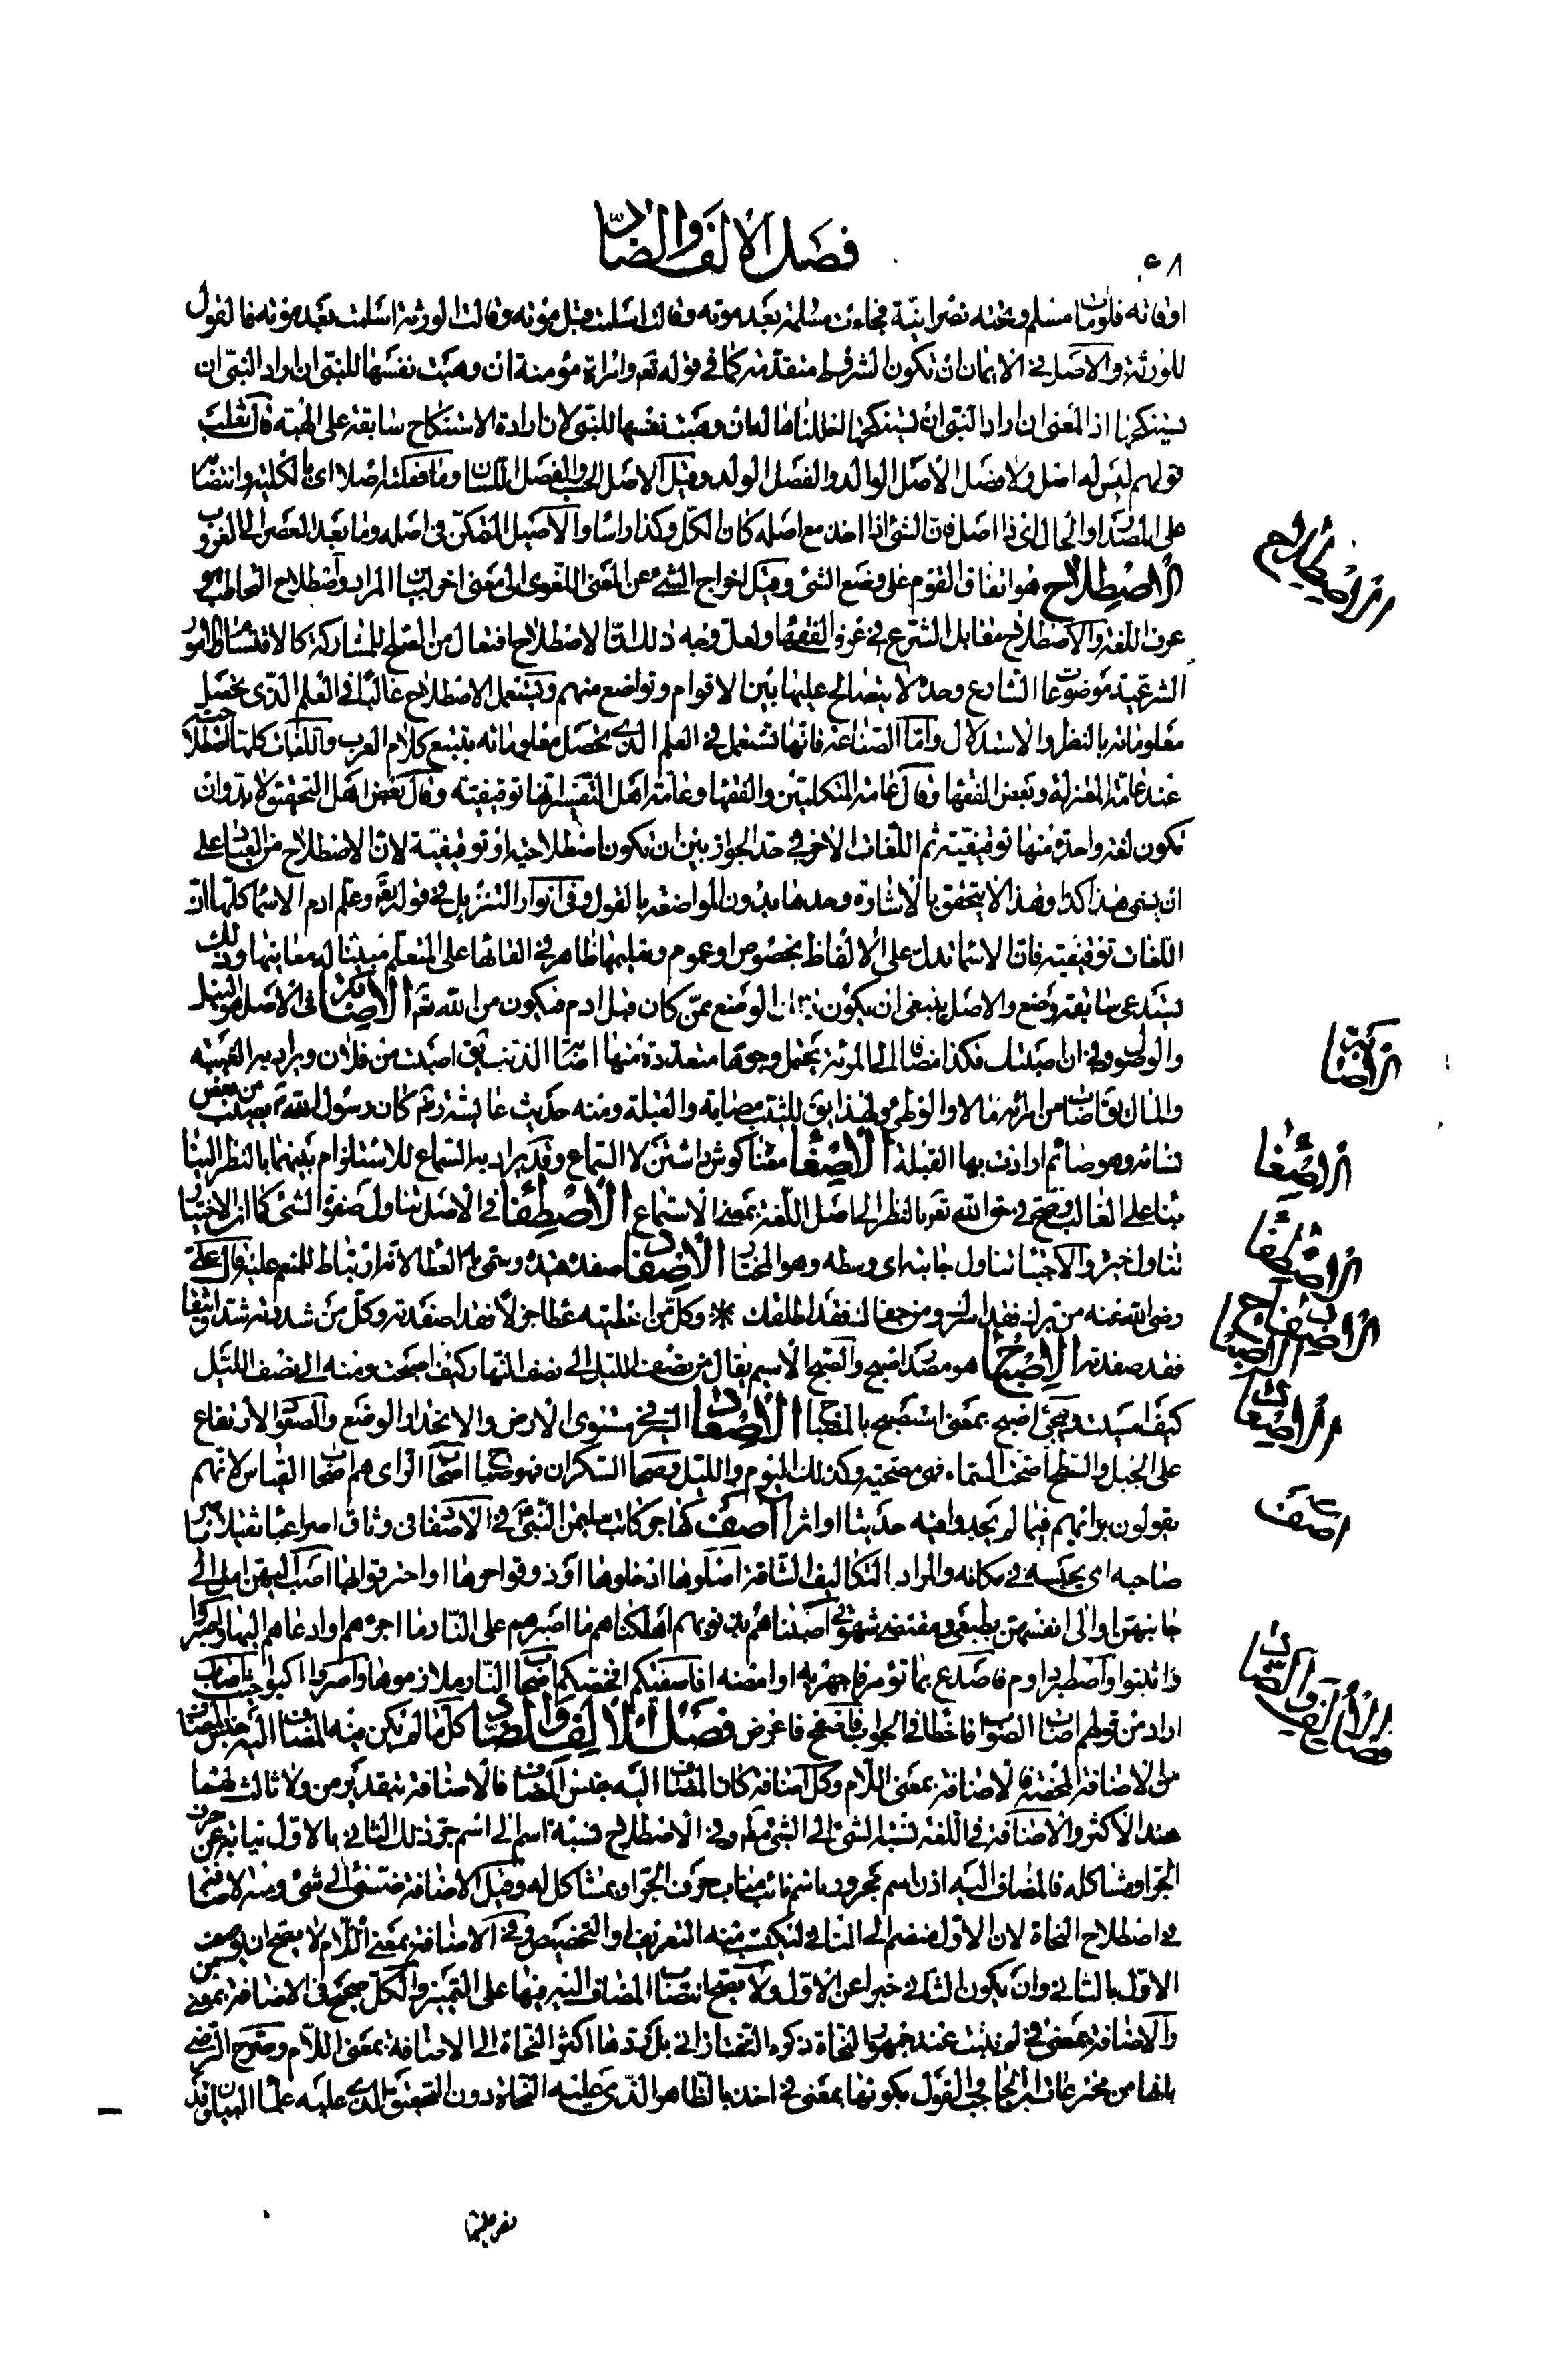 فصل الالف والضاد
٥٨
او فاته فلو مات مسلم وتحته نصرانية فجاءت مسلمة بعد موته وقالت اسلمت قبل موته وقالت الورثة اسلمت بعد موته فالقول
للورثة والاصل في الايمان ان تكون الشروط متقدمة كما في قوله تع وامراة مؤمنة ان وهبت نفسها للنبي ان اراد النبي ان
يستنكحها اذ المعنى ان اراد النبي ان يستنكحها احللناها له ان وهبت نفسها للنبي لان ارادة الاستنكاح سابقة على الهبة قال ثعلب
قولهم ليس له اصل ولا فصل الاصل الوالد والفصل الولد وقيل الاصل الحسب والفصل اللسان وما فعلته اصلا اي بالكلية وانتصابه
على المصدر او الحال اي ذا اصل فان الشئ اذا اخذ مع اصله كان الكل وكذا راسا والاصيل المتمكن في اصله وما بعد العصر الى الغروب
الاصطلاح هو اتفاق القوم على وضع الشئ وقيل اخراج الشئ عن المعنى اللغوي الى معنى اخر لبيان المراد واصطلاح التخاطب هو
عرف اللغة والاصطلاح مقابل الشرع في عرف الفقهاء ولعل وجه ذلك ان الاصطلاح افتعال من الصلح للمشاركة كالاقتسام والامور
الشرعية موضوعات الشارع وحده لا يتصالح عليها بين الاقوام وتواضع منهم ويستعمل الاصطلاح غالبا في العلم الذي تحصل
معلوماته بالنظر والاستدلال واما الصناعة فانها تستعمل في العلم الذي تحصل معلوماته بتتبع كلام العرب واللغات كلها اصطلاحية
عند عامة المعتزلة وبعض الفقها وقال عامة المتكلمين والفقها وعامة اهل التفسير انها توقيفية وقال بعض اهل التحقيق لا بد وان
تكون لغة واحدة منها توقيفية ثم اللغات الاخر في حد الجواز بين ان تكون اصطلاحية او توقيفية لان الاصطلاح من العباد على
ان يسمى هذا كذا وهذا كذا لا يتحقق بالاشارة وحدها بدون المواضعة بالقول وفي انوار التنزيل في قوله تع وعلم ادم الاسما كلها ان
اللغات توقيفية فان الاسما تدل على الالفاظ بخصوص او عموم وتعليمها ظاهر في القائها على المتعلم مبينا له معانيها وذلك
يستدعي سابقة وضع والاصل ينبغي ان يكون ذلك الوضع ممن كان قبل ادم فيكون من الله تع الاصابة في الاصل هو النيل
والوصول وفي ان اصبتك فكذا مضافا الى المرئة يحتمل وجوها متعددة منها اصابة الذنب يق اصبت من فلان ويراد به الغيبة
والمال يق اصاب من امرئه مالا والوطئ ولهذا يق للثيب مصابة والقبلة ومنه حديث عائشة رض كان رسول الله يصيب من بعض
نسائه وهو صائم ارادت بها القبلة الاصغا معناه كوش داشتن لا السماع وقد يراد به السماع للاستلزام بينهما بالنظر الينا
بنا على الغالب وصح في حق الله تع بالنظر الى اصل اللغة بمعنى الاستماع الاصطفا في الاصل تناول صفوة الشئ كما ان الاختيار
تناول خيره والاجتبا تناول جابته اي وسطه وهو المختار الاصفاد صفده قيده وسمي به العطا لانه ارتباط للمنعم عليه قال علي
رضي الله عنه من برك فقد اسرك ومن جفاك فقد اطلقك * وكل من اعطيته عطا جزلا فقد اصفدته وكل من شددته شدا وثيقا
فقد صفدته الاصباح هو مصدر اصبح والصبح الاسم يقال من نصف الليل الى نصف النهار كيف اصبحت ومنه الى نصف الليل
كيف امسيت ويجئ اصبح بمعنى استصبح بالمصباح الاصعاد السير في مستوى الارض والانحدار الوضع والصعود الارتفاع
على الجبل والسطح اصحت السماء فهي مصحية وكذلك اليوم والليل وصحا السكران فهو صاح اصحاب الراي هم اصحاب القياس لانهم
يقولون برائهم فيما لم يجدوا فيه حديثا او اثرا آصف كهاجر كاتب سليمن النبي في الاصفاد في وثاق اصرا عبا ثقيلا يأصر
صاحبه اي يحبسه في مكانه والمراد التكاليف الشاقة اصلوها ادخلوها او ذوقوا حرها او احترقوا بها اصب اليهن امل الى
جانبهن او الى انفسهن بطبعي ومقتضى شهوتي اصبناهم بذنوبهم اهلكناهم ما اصبرهم على النار ما اجرءهم او ادعاهم اليها واصبروا
واثبتوا واصطبر داوم فاصدع بما تؤمر فاجهر به او امضه افاصفيكم افخصكم اصحاب النار ملازموها واصروا اكبوا حيث اصاب
اراد من قولهم اصاب الصواب فاخطا في الجواب فاصفح فاعرض فصل الالف والضاد كل ما لم يكن فيه المضاف اليه جنس المضاف
من الاضافة المحضة فالاضافة بمعنى اللام وكل اضافة كان المضاف اليه جنس المضاف فالاضافة بتقدير من ولا ثالث لهما
عند الاكثر والاضافة في اللغة نسبة الشئ الى الشئ مط وفي الاصطلاح نسبة اسم الى اسم جر ذلك الثاني بالاول نيابة عن حرف
الجر او مشاكله فالمضاف اليه اذن اسم مجرور باسم نائب مناب حرف الجر او بمشاكل له وقيل الاضافة ضم شئ الى شئ ومنه الاضافة
في اصطلاح النحاة لان الاول منضم الى الثاني ليكتسب منه التعريف او التخصيص وفي الاضافة بمعنى اللام لا يصح ان يوصف
الاول بالثاني وان يكون الثاني خبرا عن الاول ولا يصح انتصاب المضاف اليه فيها على التمييز والكل صحيح في الاضافة بمعنى من
والاضافة بمعنى في لم تثبت عند جمهور النحاة ذكره التفتازاني بل ردها اكثر النحاة الى الاضافة بمعنى اللام وصرح الرضي
بانها من مخترعات ابن الحاجب القول بكونها بمعنى في اخذ بالظاهر الذي عليه النحاة دون التحقيق الذي عليه علما البيان وقد
الاصطلاح
الاصابة
الاصغا
الاصطفا
الاصفاد
الاصباح
الاصعاد
اصف
فصل الالف والضاد